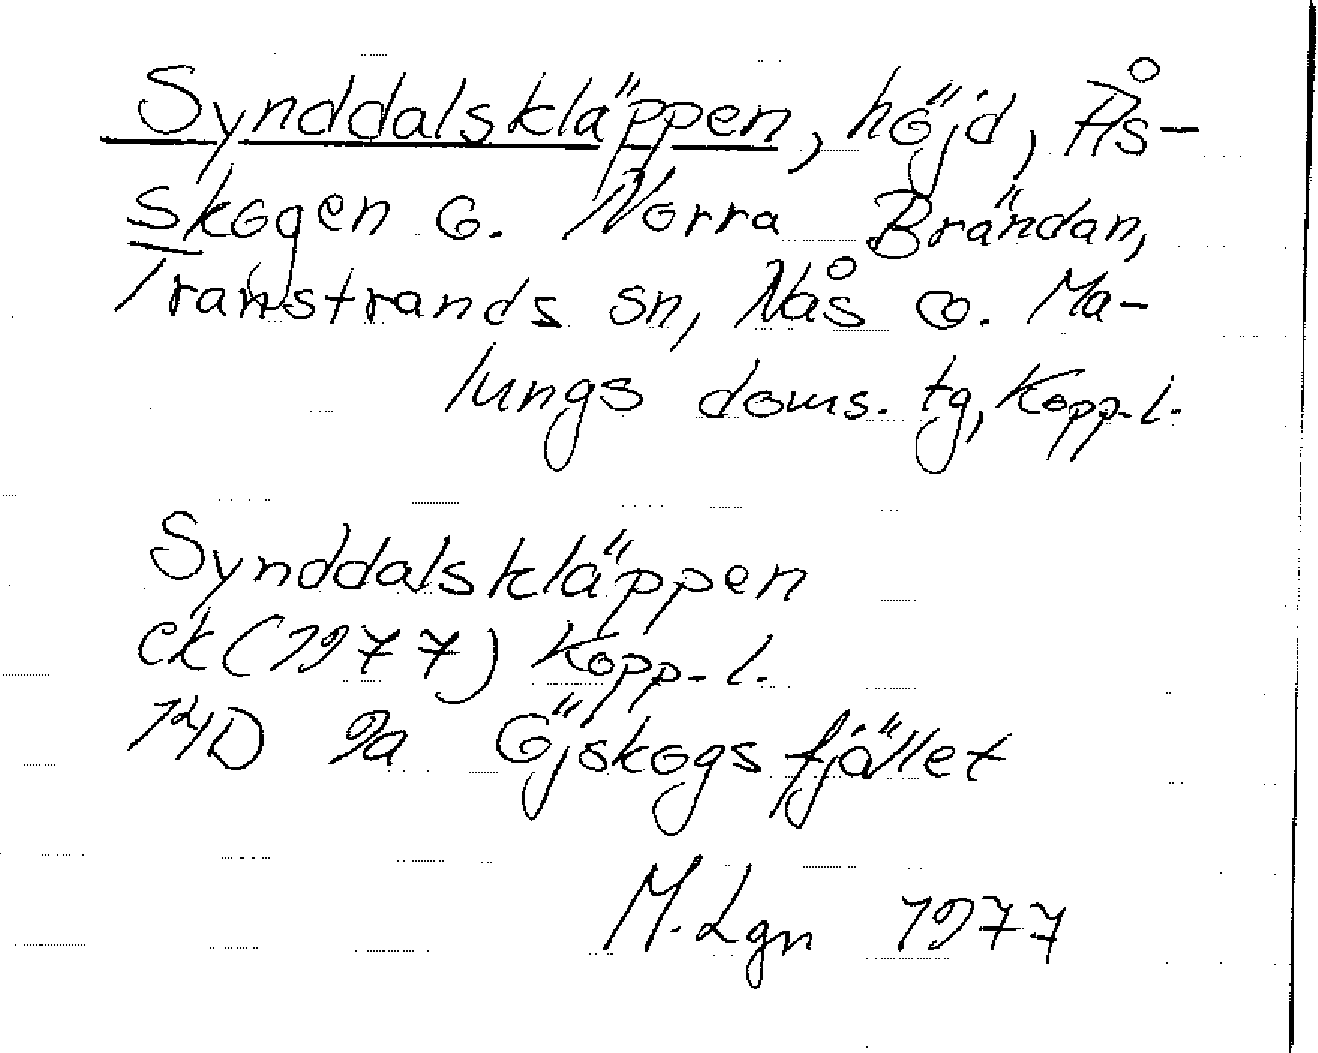 Synddalskläppen, höjd, Ås-
skogen o. Norra Brändan,
Transtrands sn, Nås o. Ma-
lungs doms. tg, Kopp. l.
Synddalskläppen
ek (1977) Kopp. l.
14D 9a Öjskogsfjället
M. Lgn 1977